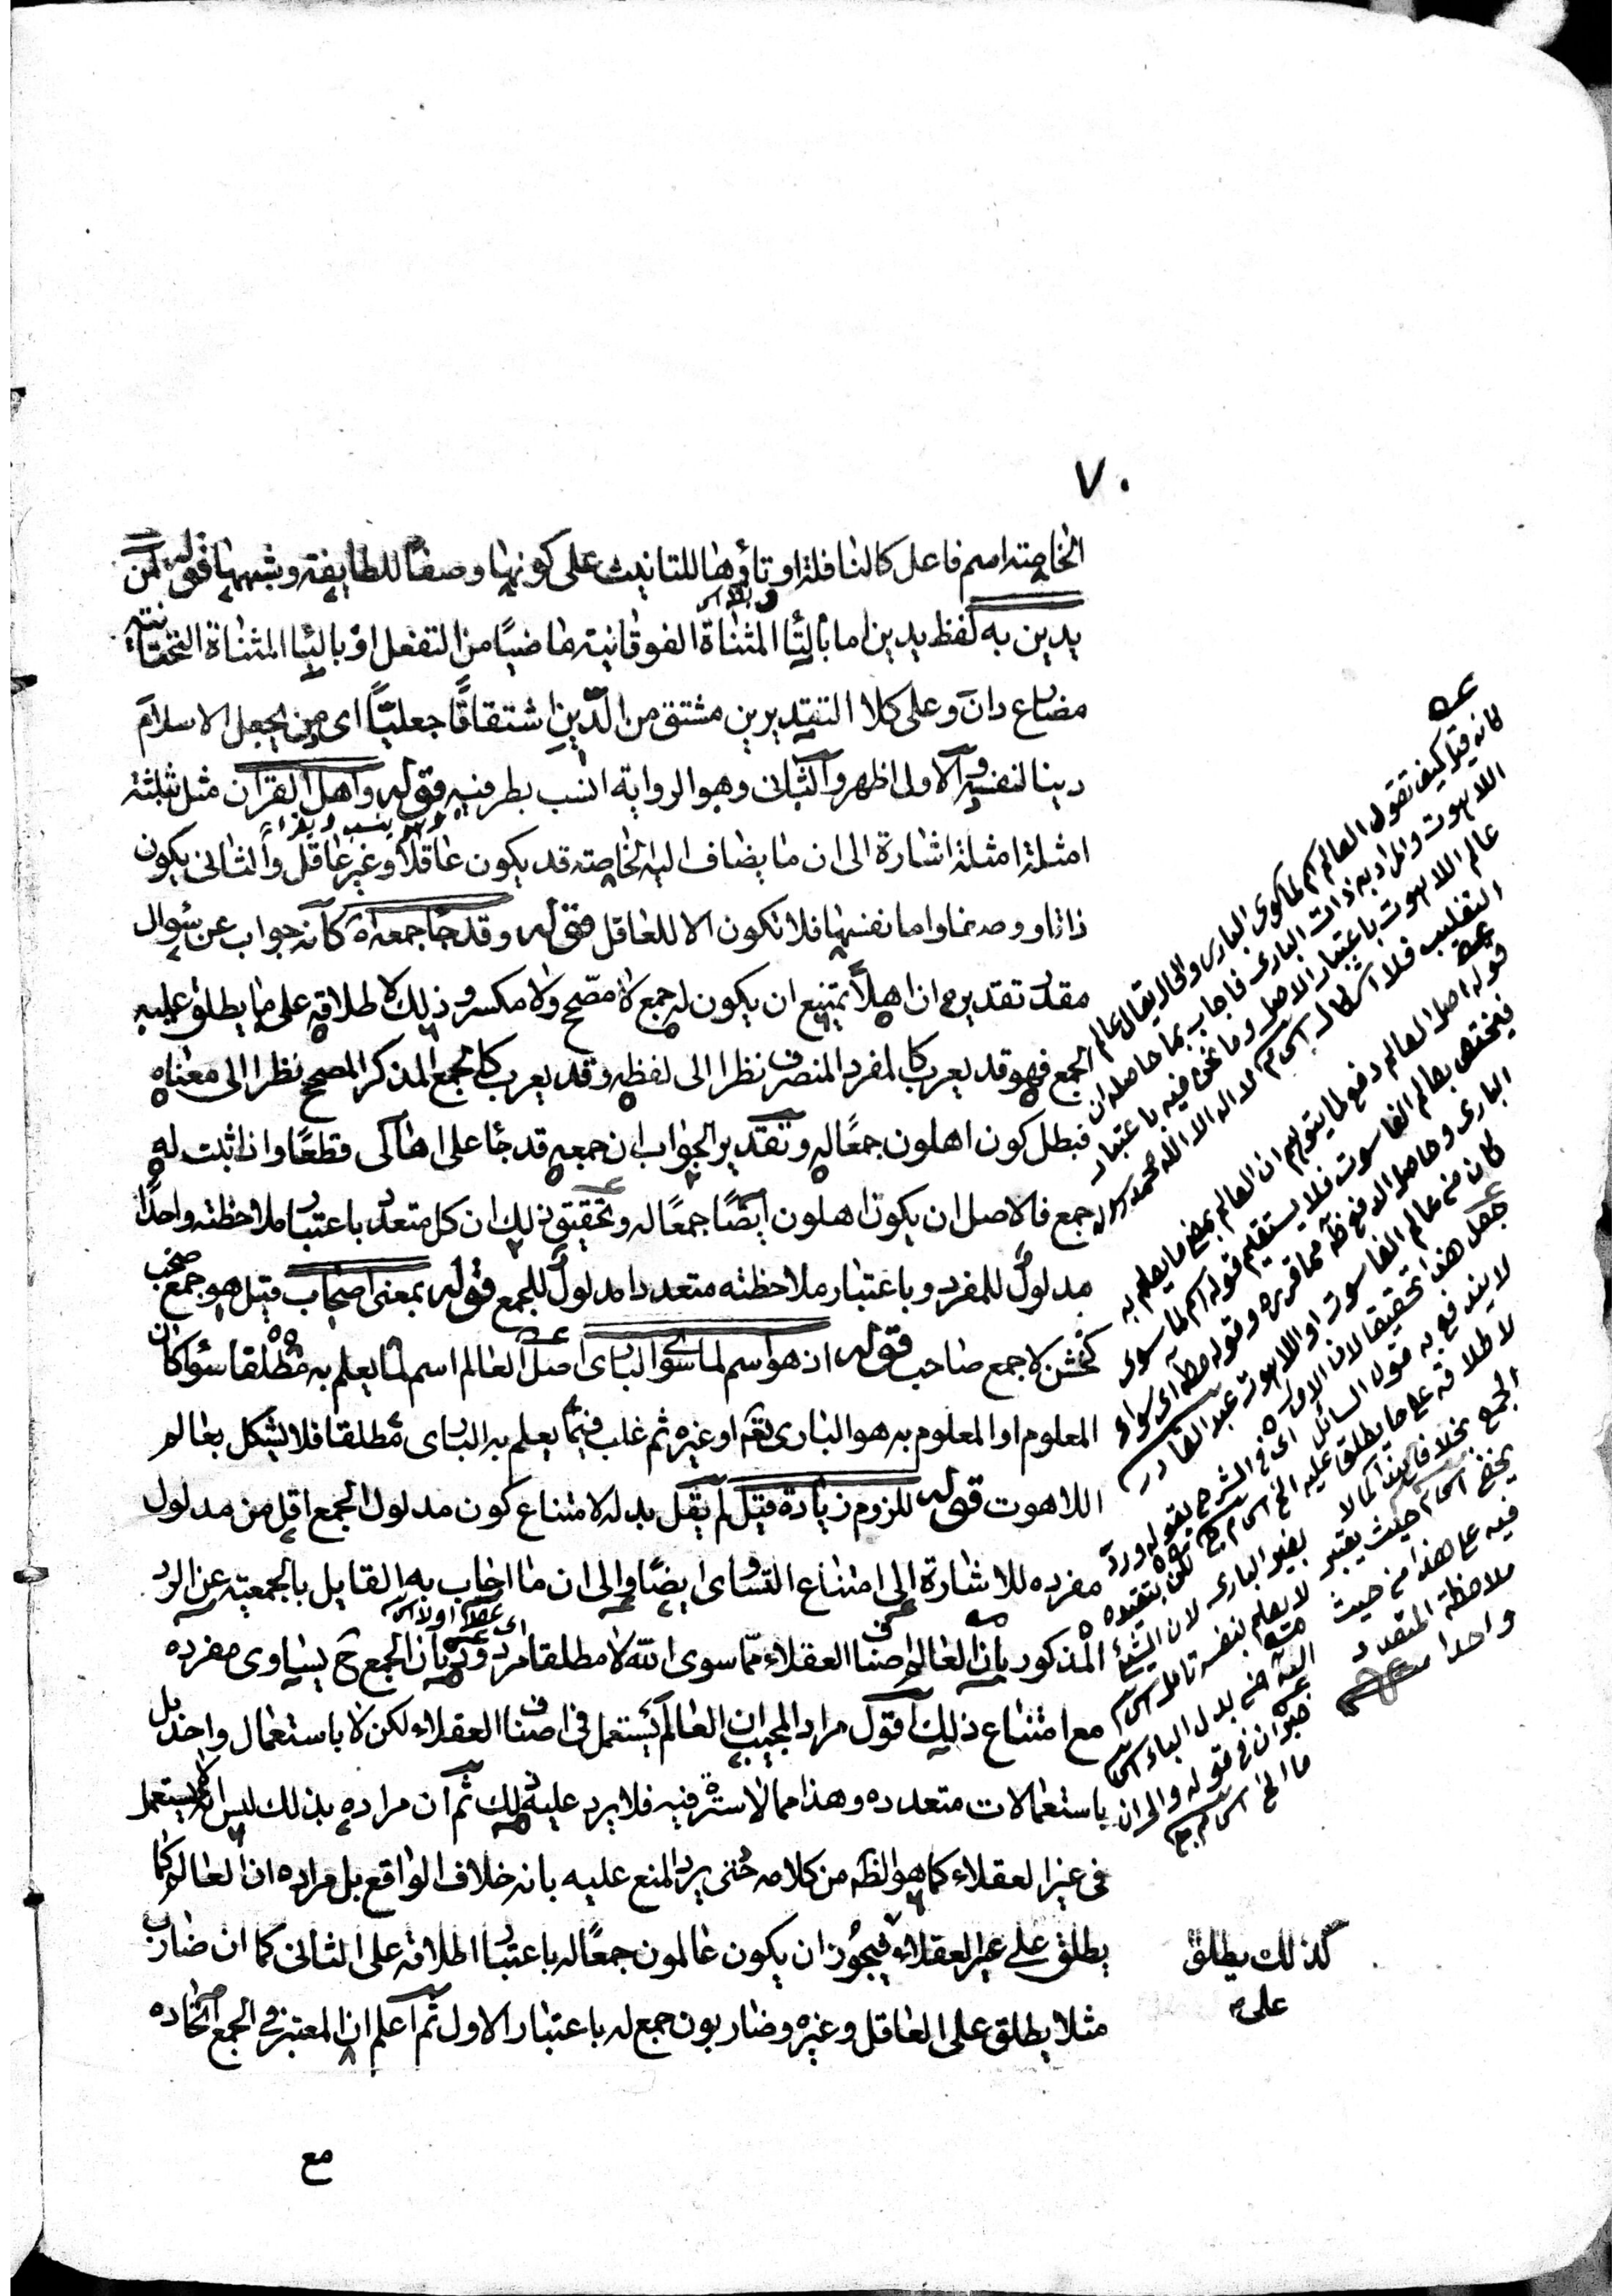 ٧٠
الخاصة اسم فاعل كالنافلة او تاؤها للتانيث على كونها وصفا للطايفة وشبهها قوله لمن
يدين به لفظ يدين اما بالتا المثناة الفوقانية ماضيا من التفعل او باليا المثناة التحتانية
مضارع دان وعلى كلا التقديرين مشتق من الدين اشتقاقا جعليا اى من يجعل الاسلام
دينا لنفسه والاولى اظهر والثانى وهو الرواية انسب بطرفيه قوله واهل القرآن مثل بثلثة
امثلة امثلة اشارة الى ان ما يضاف اليه الخاصة قد يكون عاقلا وغير عاقل والثانى يكون
ذاتا ووصفا واما نفسها فلا تكون الا للعاقل قوله وقد جا جمعه كانه جواب عن سوال
مقدر تقديره ان اهلا يمتنع ان يكون له جمع لا مصحح ولا مكسر وذلك لاطلاقه على ما يطلق عليه
الجمع فهو قد يعرب كالمفرد المنصرف نظرا الى لفظه وقد يعرب كالجمع المذكر المصحح نظرا الى معناه
فبطل كون اهلون جمعا له وتقدير الجواب ان جمعه قد جا على اهالى قطعا واذا ثبت له
جمع فالاصل ان يكون اهلون ايضا جمعا له وتحقيق ذلك ان كل متعدد باعتبار ملاحظته واحدا
مدلول للمفرد وباعتبار ملاحظته متعددا مدلول للجمع قوله بمعنى اصحاب قيل هو جمع صحب
لا جمع صاحب قوله اذ هو اسم لما سوى البارى اصل العالم اسم لما يعلم به مطلقا سوا كان
المعلوم او المعلوم به هو البارى تعم او غيره ثم غلب فيما يعلم به البارى مطلقا فلا يشكل بعالم
اللاهوت قوله للزوم زيادة قيل لم يقل بدله لامتناع كون مدلول الجمع اقل من مدلول
مفرده للاشارة الى امتناع التساوى ايضا والى ان ما اجاب به القايل بالجمعية عن الرد
المذكور بان العالم اصناف العقلاء مما سوى الله لا مطلقا مردود بان الجمع ح يساوى مفرده
مع امتناع ذلك اقول مراد المجيب ان العالم يستعمل فى اصناف العقلاء لكن لا باستعمال واحد بل
باستعمالات متعدده وهذا مما لا سترة فيه فلا يرد عليه ذلك ثم ان مراده بذلك ليس انه لا يستعمل
فى غير العقلاء كما هو الظه من كلامه حتى يرد المنع عليه بانه خلاف الواقع بل مراده ان العالم كما
يطلق على غير العقلاء فيجوز ان يكون عالمون جمعا له باعتبار اطلاقه على الثانى كما ان ضارب
مثلا يطلق على العاقل وغيره وضاربون جمع له باعتبار الاول ثم اعلم ان المعتبر فى الجمع اتحاده
مع
كانه قيل كيف تقول العالم اسم لما سوى البارى والحال يقال عالم
اللاهوت والمراد به ذات البارى فاجاب بما حاصله ان
عالم اللاهوت باعتبار الاصل وما نحن فيه باعتبار
التغليب فلا اشكال
لا اله الا الله محمد رسوله
قوله اصل العالم دفع لما يتوهم ان العالم بمعنى ما يعلم به
فيختص بعالم الناسوت فلا يستقيم قوله اسم لما سوى
البارى وحاصل الدفع ظه مما قرره وقوله مطه اى سواء
كان من عالم الناسوت او اللاهوت عبد القادر
جعل هذا تحقيقا لان الاول
لا يندفع به قول السائل
لاطلاقه على ما يطلق عليه الخ
الجمع بخلاف هذا
فيه على هذا من حيث
ملاحظة المتعدد
واحدا
اى فى الشرح بقوله ورد
لا يعلم بنفسه تامل
خبر ان فى قوله والى ان
ما الخ
كذلك يطلق
على